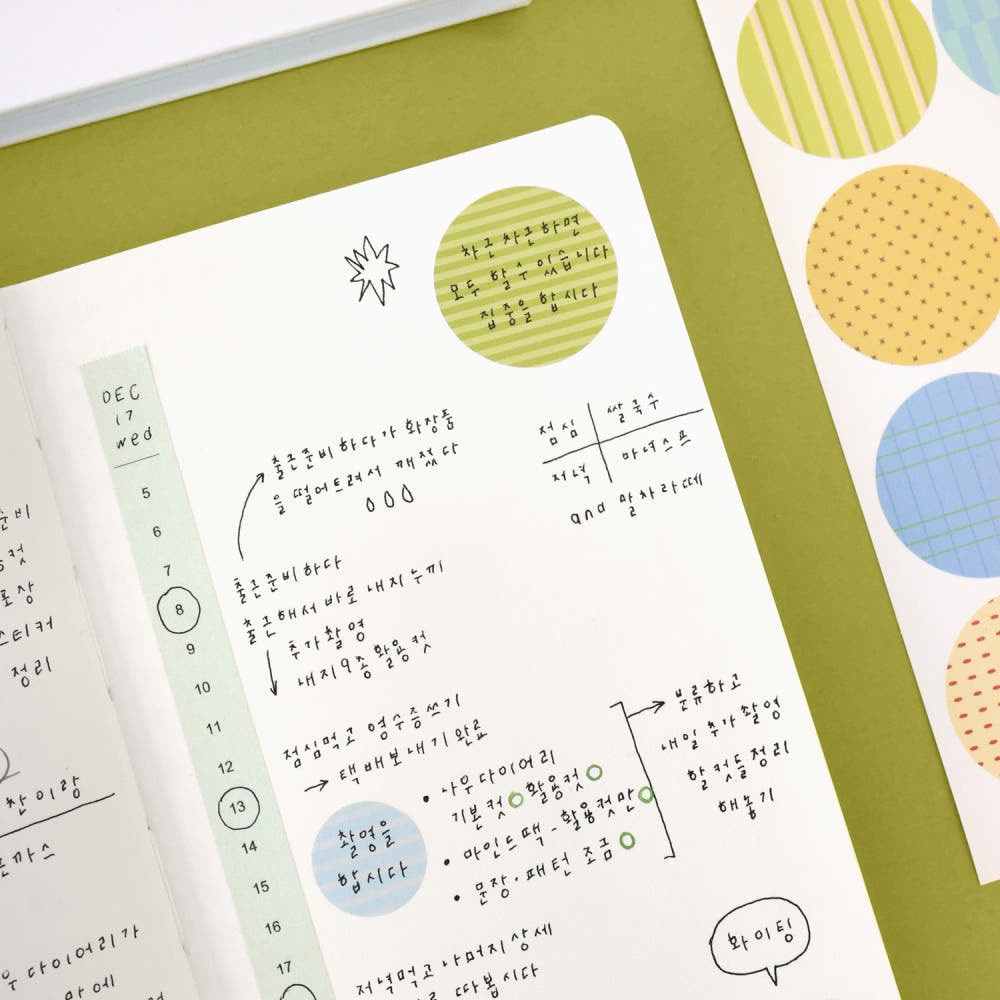 차근차근하면
모두 할 수 있습니다
집중을 합시다
DEC
17
wed
5
6
7
8
9
10
11
12
13
14
15
16
17
출근준비하다가 화장품
을 떨어트려서 깨졌다
점심 쌀국수
저녁 마녀스프
and 말차라떼
출근준비하다
출근해서 바로 내지누끼
추가촬영
내지9종 활용컷
점심먹고 영수증쓰기
→ 택배보내기 완료
촬영을
합시다
• 나우다이어리
기본컷 활용컷
• 마인드팩 - 활용컷만
• 문장·패턴 조금
분류하고
내일 추가촬영
할 컷들정리
해놓기
저녁먹고 나머지상세
따봅시다
화이팅
스티커
정리
찬이랑
다이어리가